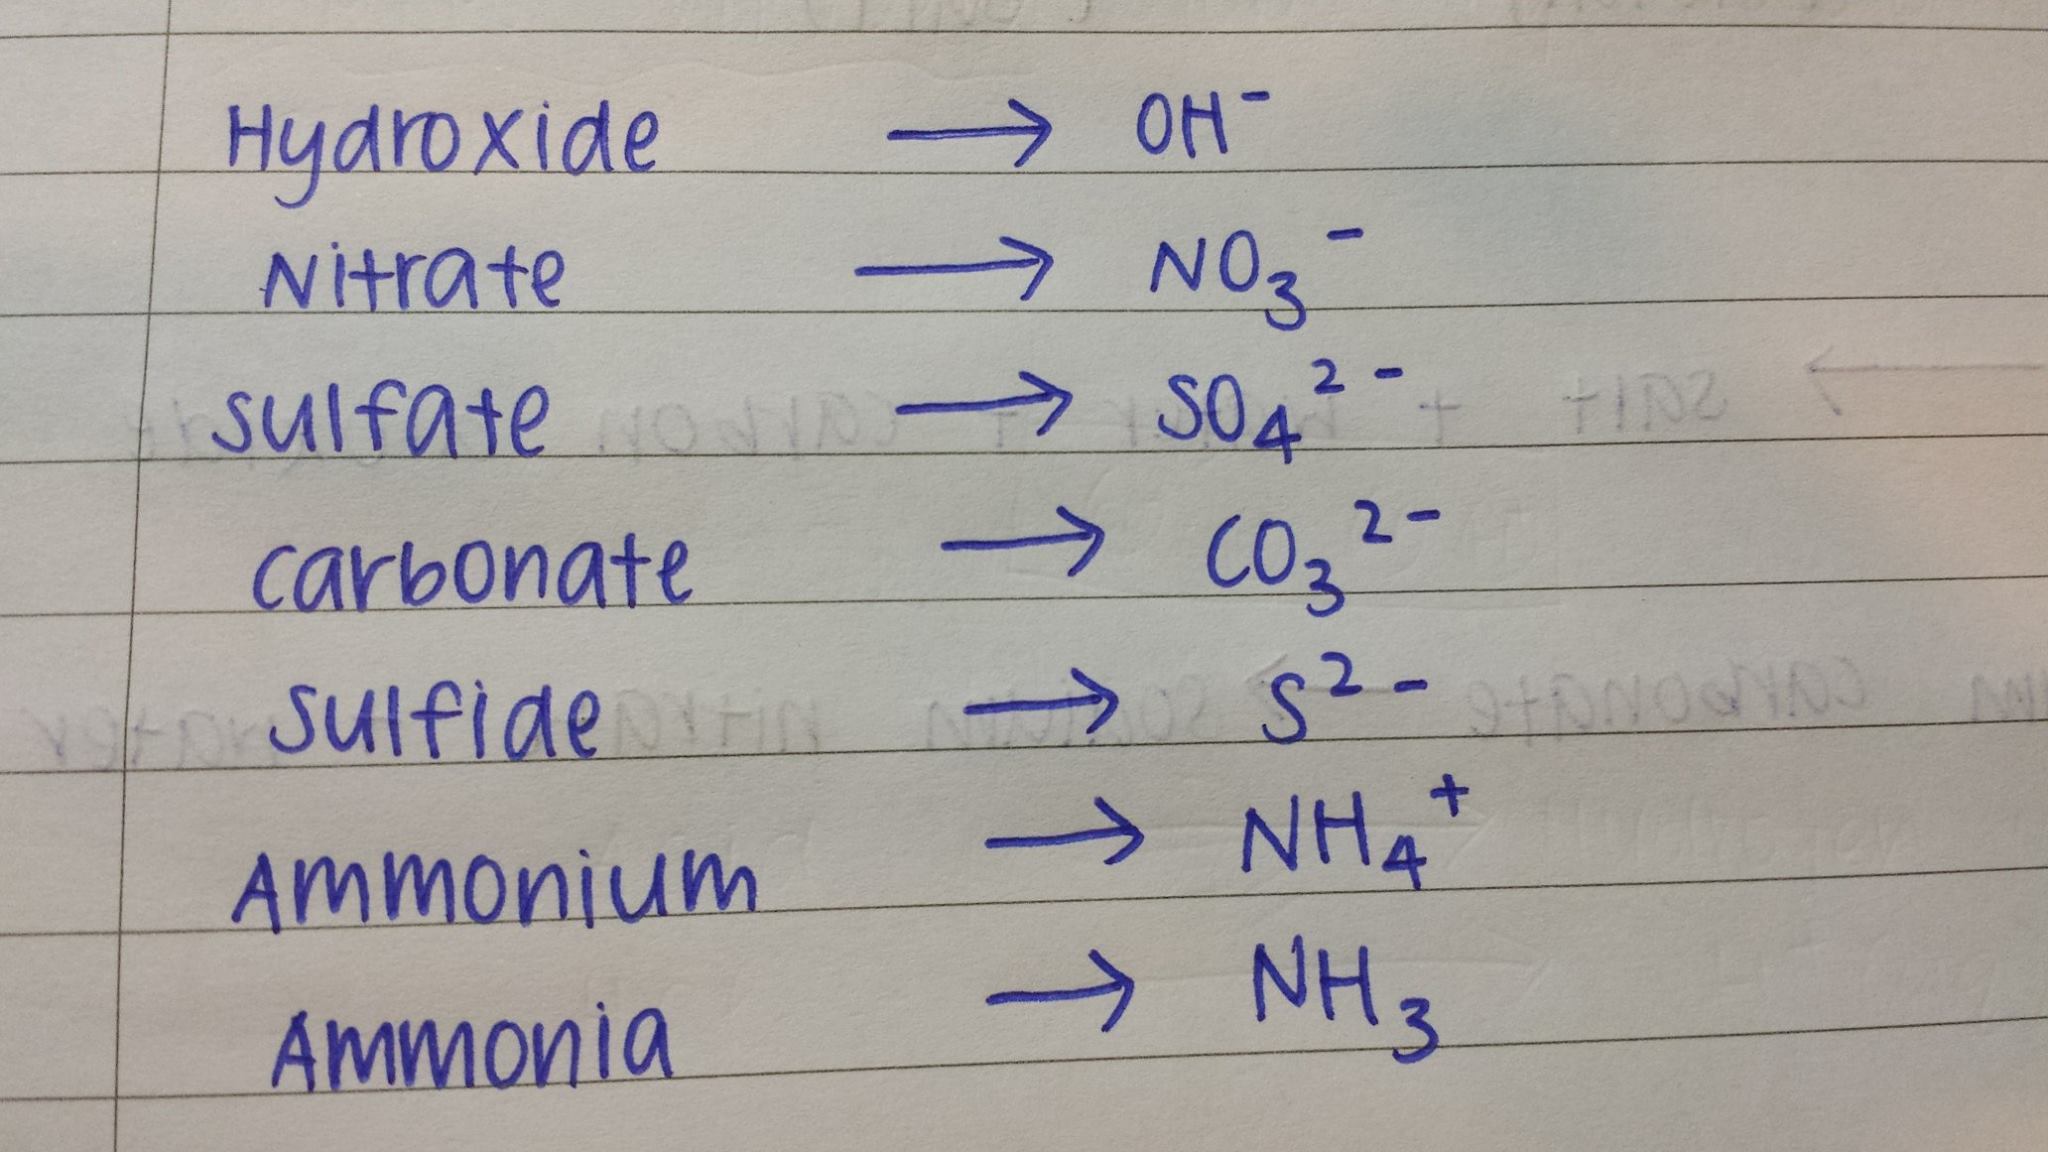 Hydroxide → OH⁻
Nitrate → NO₃⁻
Sulfate → SO₄²⁻
Carbonate → CO₃²⁻
Sulfide → S²⁻
Ammonium → NH₄⁺
Ammonia → NH₃